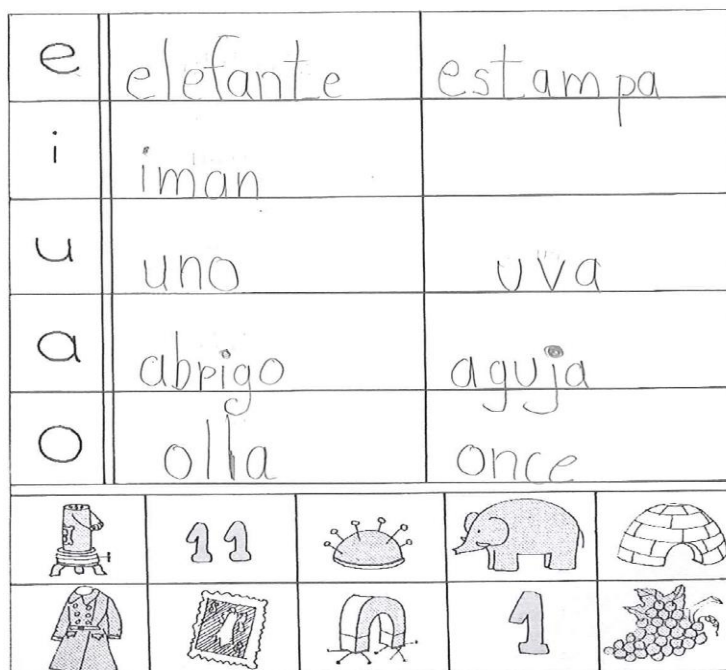 e elefante estampa
i iman
u uno uva
a abrigo aguja
o olla once
11
1